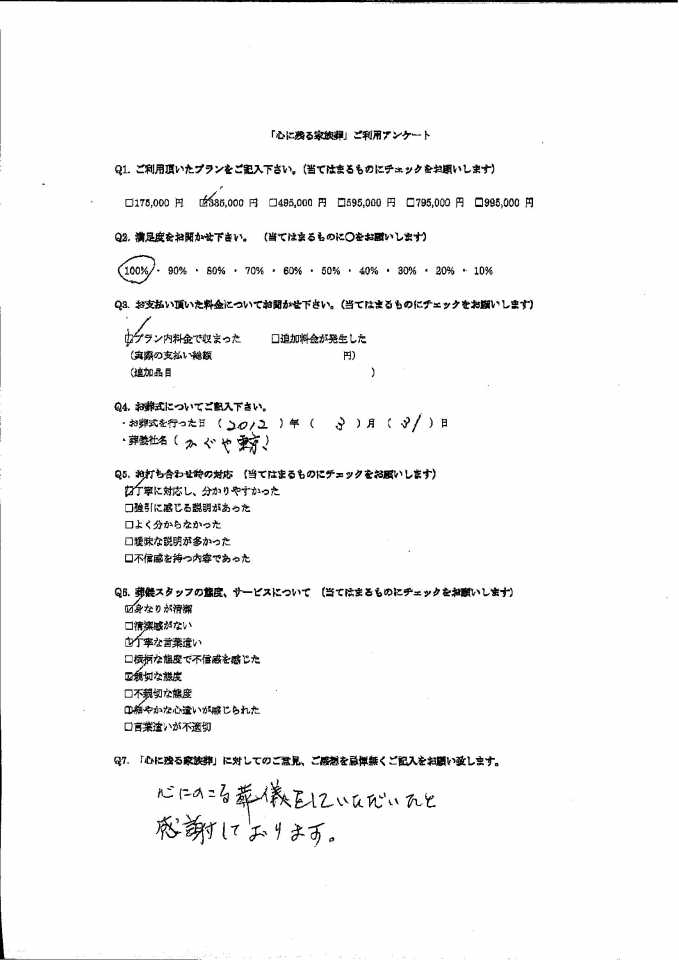 「心に残る家族葬」ご利用アンケート
Q1. ご利用頂いたプランをご記入下さい。(当てはまるものにチェックをお願いします)
□175,000 円 ☑385,000 円 □495,000 円 □595,000 円 □795,000 円 □995,000 円
Q2. 満足度をお聞かせ下さい。 (当てはまるものに○をお願いします)
100%・90%・80%・70%・60%・50%・40%・30%・20%・10%
Q3. お支払い頂いた料金についてお聞かせ下さい。(当てはまるものにチェックをお願いします)
☑プラン内料金で収まった □追加料金が発生した
(実際の支払い総額 円)
(追加品目 )
Q4. お葬式についてご記入下さい。
・お葬式を行った日 (2012) 年 ( 3 ) 月 ( 31 ) 日
・葬儀社名 ( かぐや東京 )
Q5. お打ち合わせ時の対応 (当てはまるものにチェックをお願いします)
☑丁寧に対応し、分かりやすかった
□強引に感じる説明があった
□よく分からなかった
□曖昧な説明が多かった
□不信感を持つ内容であった
Q6. 葬儀スタッフの態度、サービスについて (当てはまるものにチェックをお願いします)
☑身なりが清潔
□清潔感がない
☑丁寧な言葉遣い
□横柄な態度で不信感を感じた
☑親切な態度
□不親切な態度
☑細やかな心遣いが感じられた
□言葉遣いが不適切
Q7. 「心に残る家族葬」に対してのご意見、ご感想を忌憚無くご記入をお願い致します。
心にのこる葬儀をしていただいたと
感謝しております。